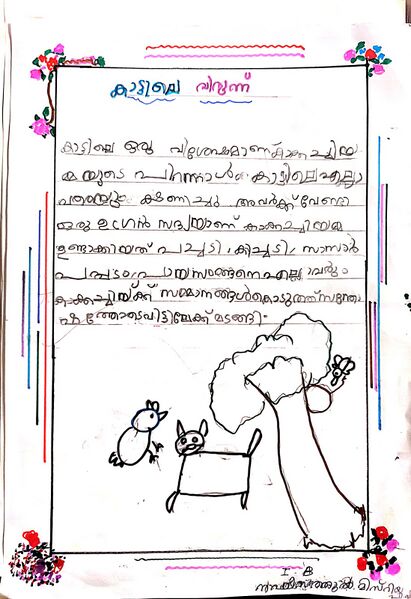 കാട്ടിലെ വിരുന്ന്
കാട്ടിലെ ഒരു വിശേഷമാണ് കാക്കച്ചിയ
മ്മയുടെ പിറന്നാൾ കാട്ടിലെ എല്ലാ
ക്ഷണിച്ചു അവർക്ക് വേണ്ടി
ഒരു ഉഗ്രൻ സദ്യയാണ് കാക്കച്ചിയമ്മ
ഉണ്ടാക്കിയത് പച്ചടി, കിച്ചടി, സാമ്പാർ
പപ്പടം, പായസം അങ്ങനെ എല്ലാവരും
കാക്കച്ചിയ്ക്ക് സമ്മാനങ്ങൾ കൊടുത്ത് സന്തോ
ഷത്തോടെ വീട്ടിലേക്ക് മടങ്ങി.
I B